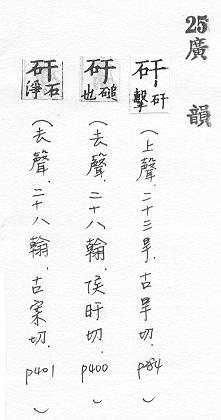 25
廣韻
矸 矸擊 (上聲.二十三旱.古旱切.p284)
矸 磓也 (去聲.二十八翰.侯旰切.p400)
矸 石淨 (去聲.二十八翰.古案切.p401)